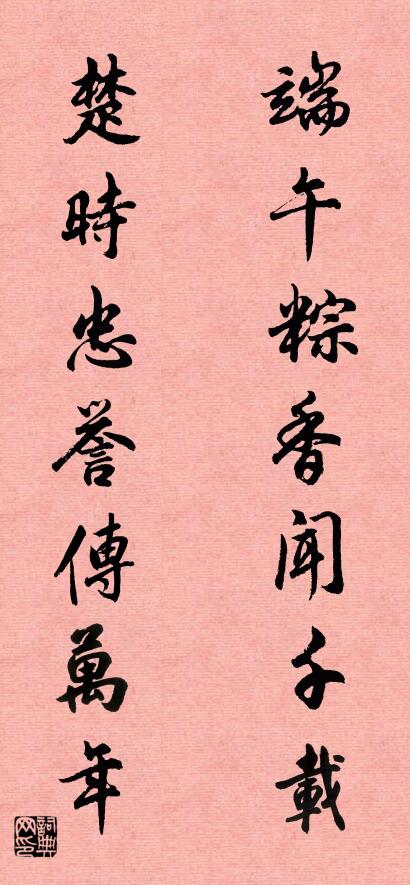 端午粽香闻千載
楚時忠誉傳萬年
詞典网印